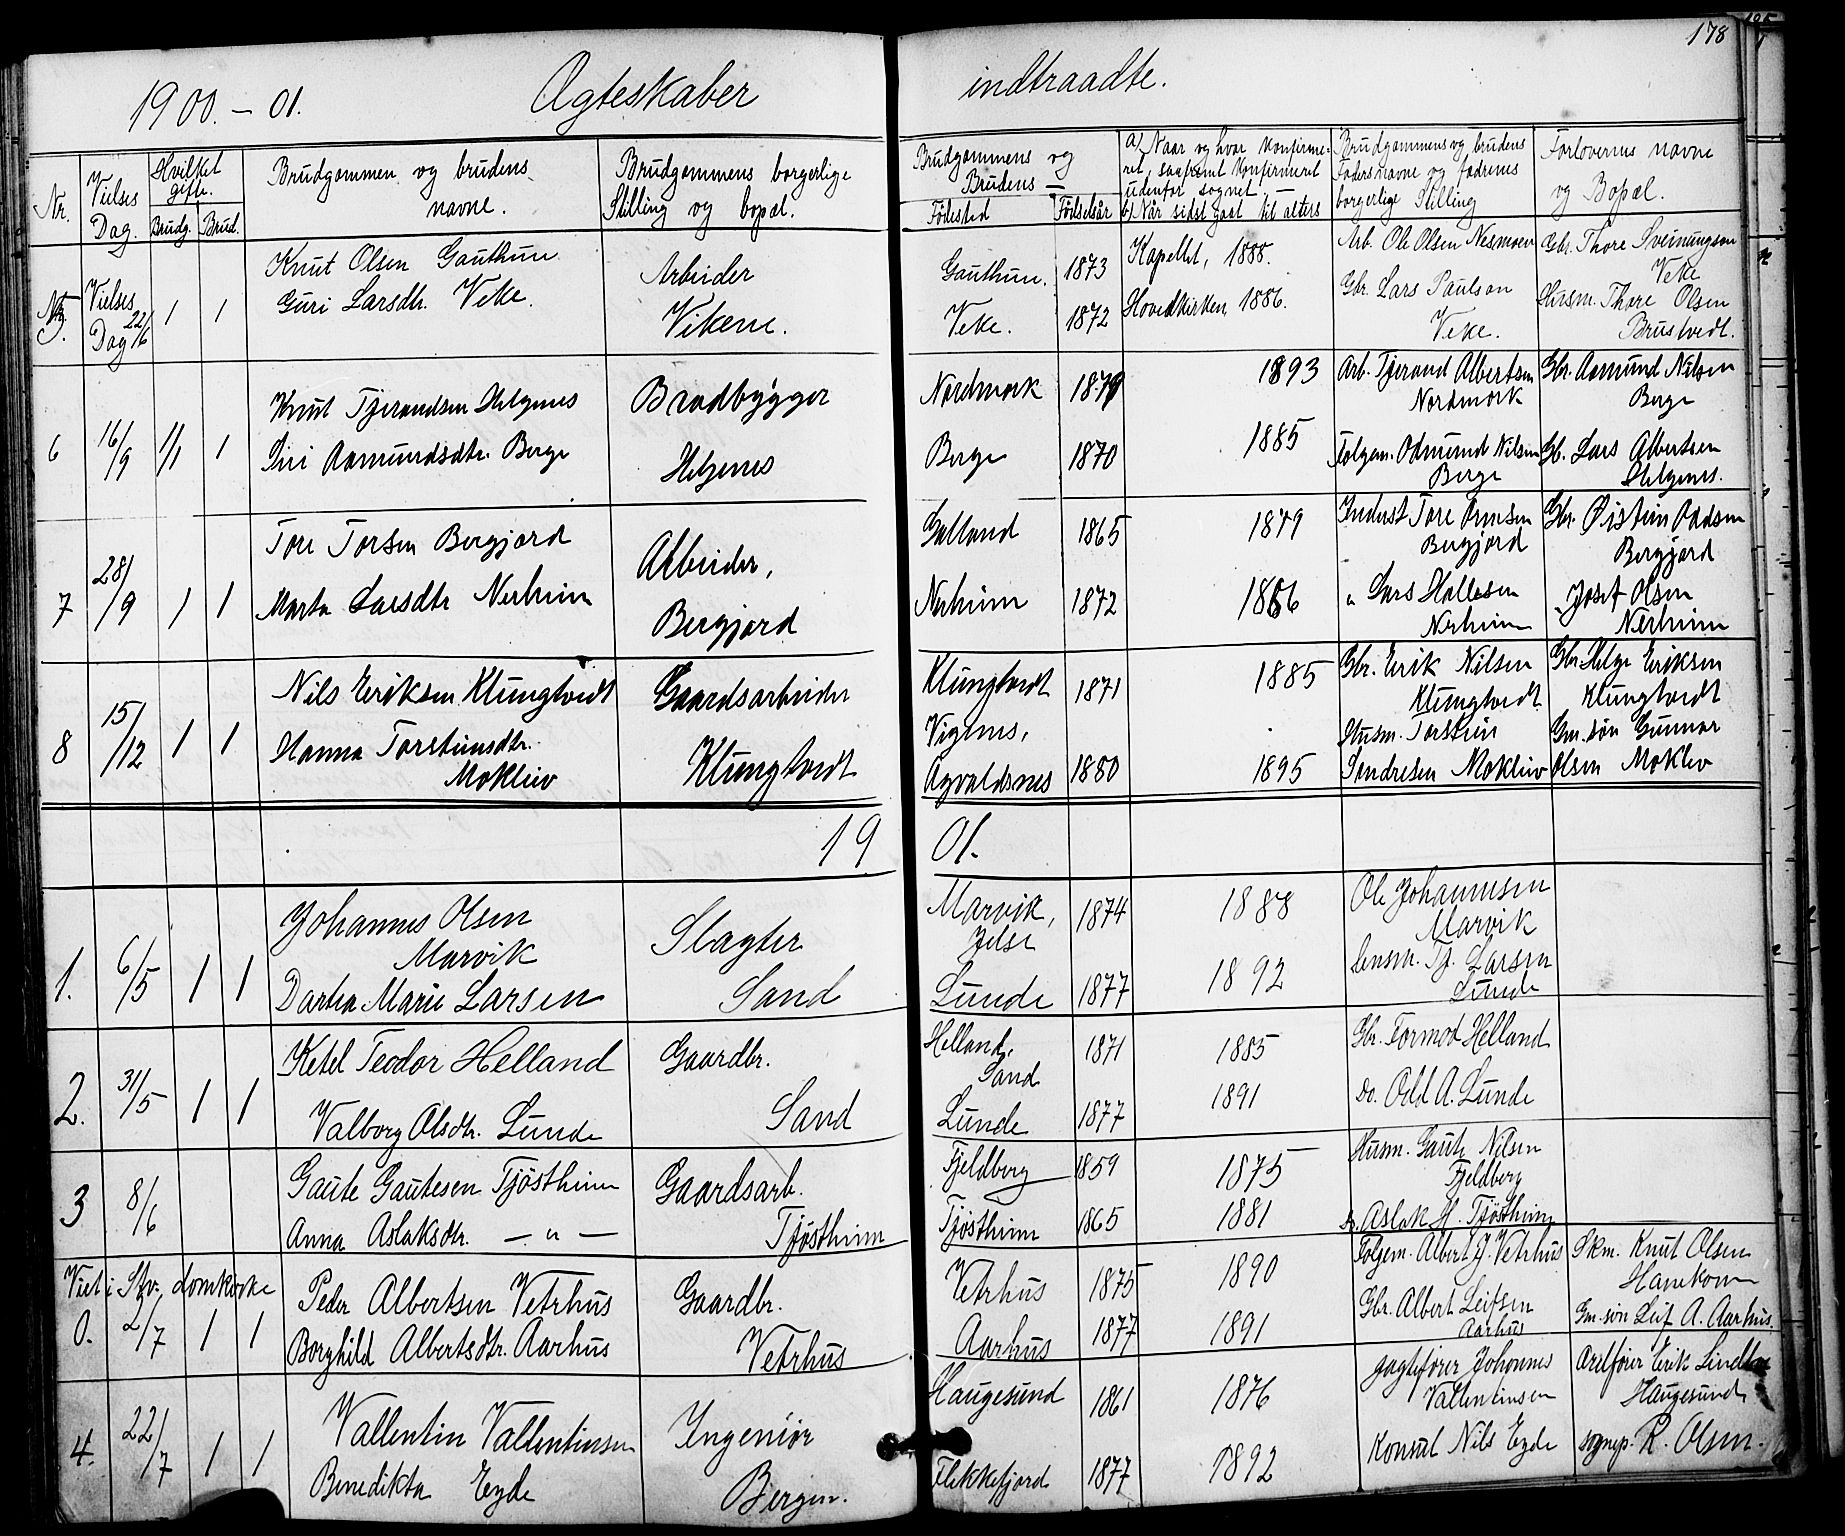 178
1900. - 01.
Ægteskaber
indtraadte.
Nr.
Vielses Dag.
Hvilket gifte.
Brudg. Brud.
Brudgommen og brudens navne.
Brudgommens borgerlige Stilling og bopæl.
Brudgommens og Brudens —
Fødested
Fødselsår
a) Naar og hvor konfirmeret, saafremt konfirmeret udenfor sognet.
b) Når sidst gaat til alters
Brudgommens og brudens Fadersnavne og fædrenes borgerlige Stilling
Forlovernes navne og Bopæl.
5. Vielses Dag 22/6 1 1
Knut Olsen Gauthun
Guri Larsdtr. Veke.
Arbeider
Vikene.
Gauthun. 1873 Kapellet, 1888.
Veke. 1872 Hovedkirken, 1886.
Arb. Ole Olsen Nesmoen
Gbr. Lars Paulson
Veke.
Gbr. Thore Sveinungson
Veke
Husm. Thore Olsen
Brustvedt.
6 16/9 1/1 1
Knut Tjerandsen Helgenes
Siri Aamundsdtr. Berge
Brødbygger
Helgenes
Nordmork 1879 1893
Berge 1870 1885
Arb. Tjerand Albertsen
Nordmork
Folgem. Odmund Nilsen
Berge
Gbr. Aamund Nilsen
Berge
Gb. Lars Albertsen
Helgenes.
7 28/9 1 1
Tore Torsen Bergjord
Marta Larsdtr Nerheim
Arbeider,
Bergjord
Galland 1865 1879
Nerheim 1872 1886
Inderst Tore
Bergjord
" Lars Hallesen
Nerheim
Gbr. Øistein Oddsen
Bergjord
Josef Olsen
Nerheim
8 15/12 1 1
Nils Eriksen Klungtveidt
Hanna Torsteinsdtr.
Mokleiv
Gaardsarbeider
Klungtvedt
Klungtvedt 1871 1885
Vigenes,
Agvaldsnes 1880 1895
Gbr. Erik Nilsen
Klungtveidt
Husm. Torstein
Sondresen Mokleiv
Gbr. Helge Eriksen
Klungtveidt
Gm. søn Gunnar
Olsen Mokleiv
1901.
1. 6/5 1 1
Johannes Olsen
Marvik
Dartea Marie Larsen
Slagter
Sand
Marvik, 1874 1888
Jelse
Lunde 1877 1892
Ole Johannesen
Marvik
Tj. Larsen
Lunde
2. 31/5 1 1
Ketel Teodor Helland
Valborg Olsdtr. Lunde
Gaardbr.
Sand
Helland, 1871 1885
Sand
Lunde 1877 1891
Gbr. Tormod Helland
Do. Odd A. Lunde
3 8/6
Gaute Gautesen Tjøstheim
Anna Aslaksdtr. — " —
Gaardsarb.
Tjøstheim
Fjeldberg 1859 1875
Tjøstheim 1865 1881
Husm. Gaute Nilsen
Fjeldberg
Do. Aslak H. Tjøstheim
Viet i Stv. domkirke
0. 2/7 1 1
Peder Albertsen Vetrhus
Borghild Albertsdtr. Aarhus
Gaardbr.
Vetrhus
Vetrhus 1875 1890
Aarhus 1877 1891
Folgem. Albert J. Vetrhus
Gbr. Albert Leifsen
Aarhus
Skm. Knut Olsen
Hanekam
Gm. søn Leif A. Aarhus.
4. 22/7 1 1
Vallentin Vallentinsen
Benedikta Eyde
Ingeniør
Bergen.
Haugesund 1861 1876
Flekkefjord 1877 1892
Jagtefører Johannes
Vallentinsen
Konsul Nils Eyde
Erik Lindtne
Haugesund
sognep. R. Olsen.